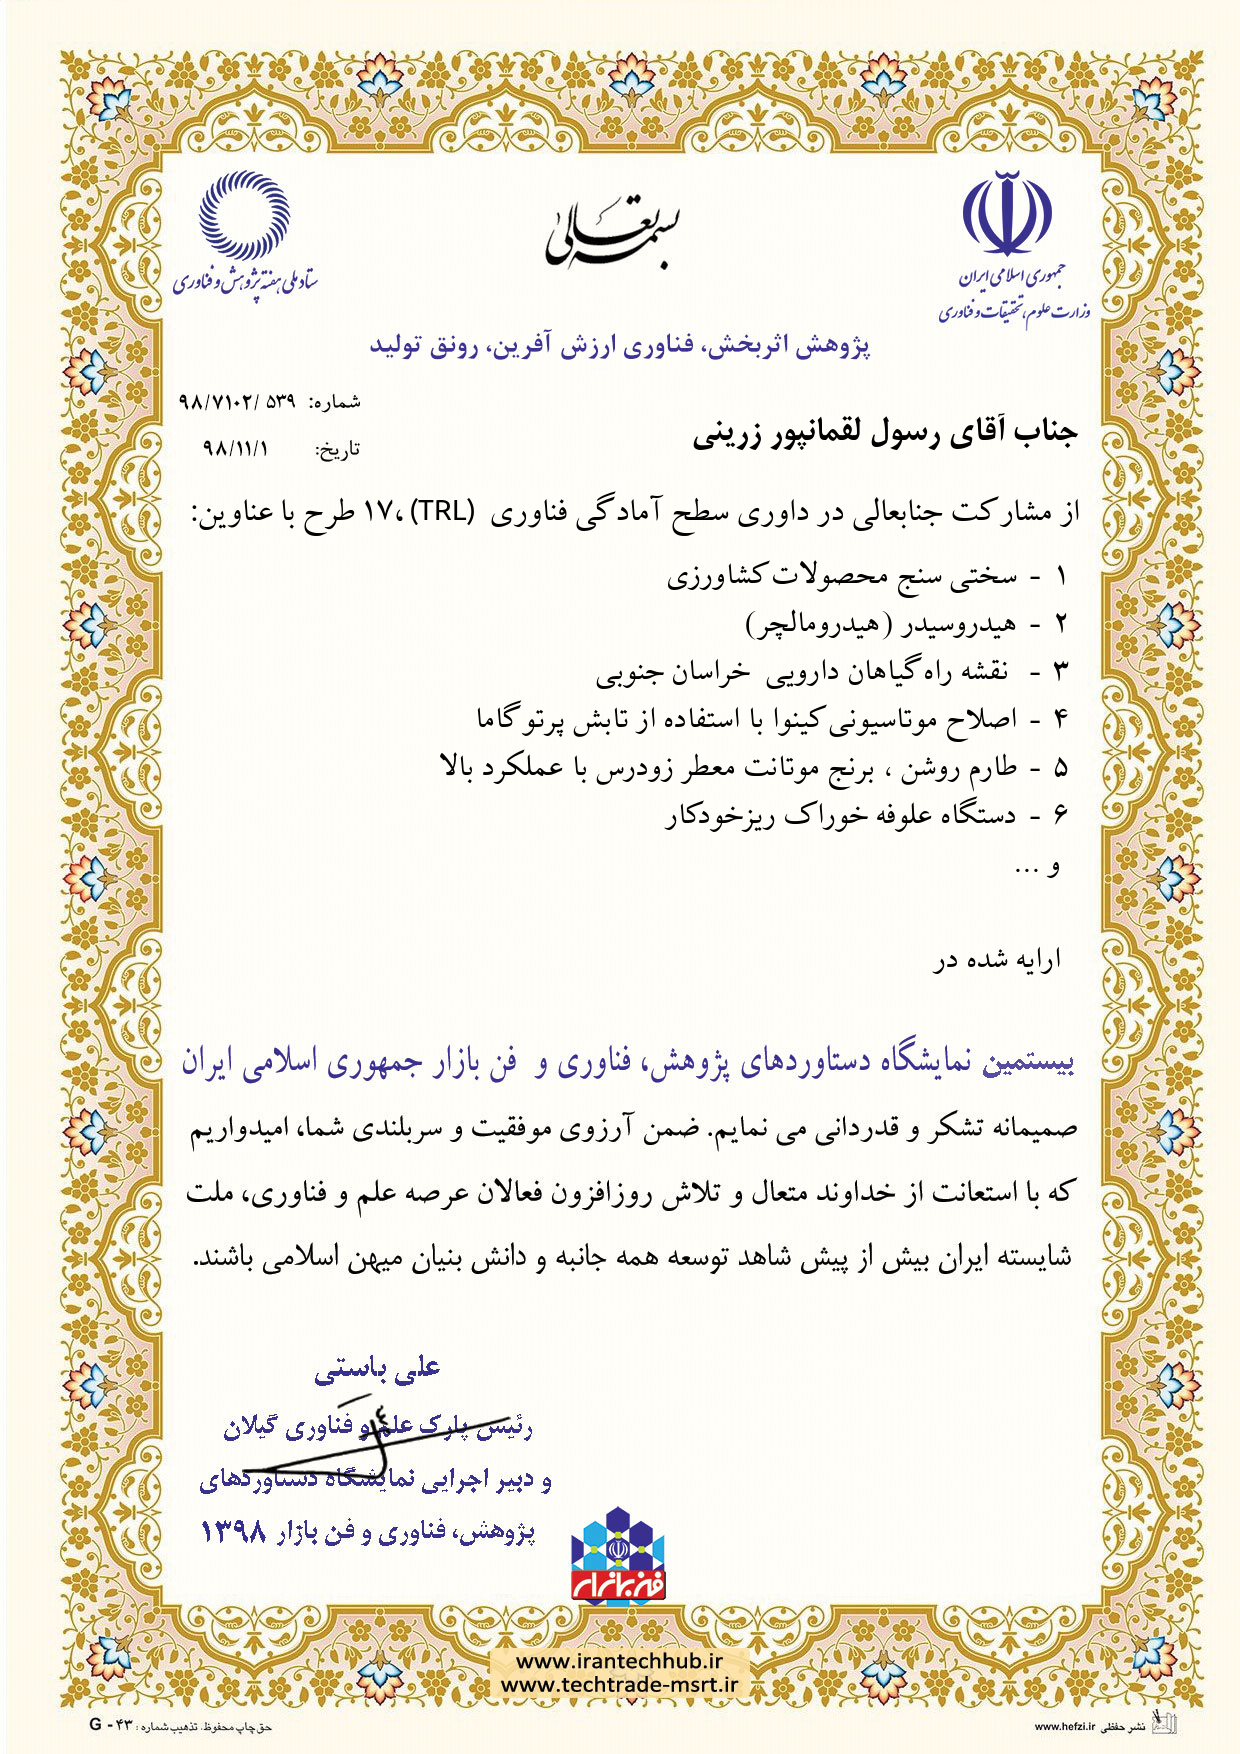 بسمه تعالی
جمهوری اسلامی ایران
وزارت علوم، تحقیقات و فناوری
ستاد ملی هفته پژوهش و فناوری
پژوهش اثربخش، فناوری ارزش آفرین، رونق تولید
شماره: ۵۳۹ /۹۸/۷۱۰۲
تاریخ: ۹۸/۱۱/۱
جناب آقای رسول لقمانپور زرینی
از مشارکت جنابعالی در داوری سطح آمادگی فناوری (TRL)، ۱۷ طرح با عناوین:
۱ - سختی سنج محصولات کشاورزی
۲ - هیدروسیدر (هیدرومالچر)
۳ - نقشه راه گیاهان دارویی خراسان جنوبی
۴ - اصلاح موتاسیونی کینوا با استفاده از تابش پرتو گاما
۵ - طارم روشن ، برنج موتانت معطر زودرس با عملکرد بالا
۶ - دستگاه علوفه خوراک ریزخودکار
و ...
ارایه شده در
بیستمین نمایشگاه دستاوردهای پژوهش، فناوری و فن بازار جمهوری اسلامی ایران
صمیمانه تشکر و قدردانی می نمایم. ضمن آرزوی موفقیت و سربلندی شما، امیدواریم
که با استعانت از خداوند متعال و تلاش روزافزون فعالان عرصه علم و فناوری، ملت
شایسته ایران بیش از پیش شاهد توسعه همه جانبه و دانش بنیان میهن اسلامی باشند.
علی باستی
رئیس پارک علم و فناوری گیلان
و دبیر اجرایی نمایشگاه دستاوردهای
پژوهش، فناوری و فن بازار ۱۳۹۸
فن بازار
www.irantechhub.ir
www.techtrade-msrt.ir
نشر حفظی www.hefzi.ir
حق چاپ محفوظ، تذهیب شماره : ۴۳ - G